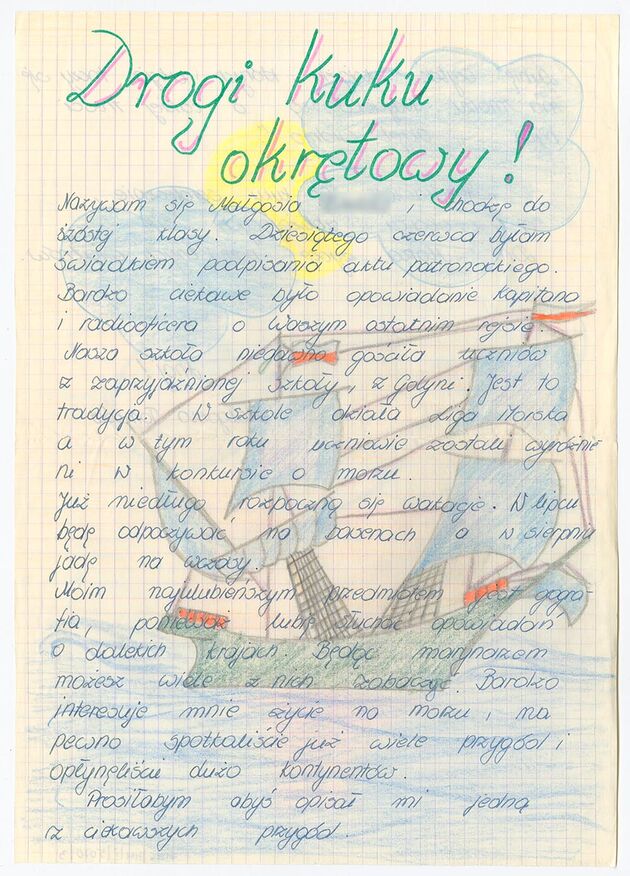 Drogi kuku
okrętowy!
Nazywam się Małgosia i chodzę do
szóstej klasy. Dziesiątego czerwca byłam
świadkiem podpisania aktu patronackiego.
Bardzo ciekawe było opowiadanie kapitana
i radiooficera o Waszym ostatnim rejsie.
Nasza szkoła niedawno gościła uczniów
z zaprzyjaźnionej szkoły, z Gdyni. Jest to
tradycja. W szkole działa Liga Morska
a w tym roku uczniowie zostali wyróżnie
ni w konkursie o morzu.
Już niedługo rozpoczną się wakacje. W lipcu
będę odpoczywać na basenach a w sierpniu
jadę na wczasy.
Moim najulubieńszym przedmiotem jest geogra-
fia, ponieważ lubię słuchać opowiadań
o dalekich krajach. Będąc marynarzem
możesz wiele z nich zobaczyć. Bardzo
interesuje mnie życie na morzu, na
pewno spotkaliście już wiele przygód i
opłynęliście dużo kontynentów.
Prosiłabym abyś opisał mi jedną
z ciekawszych przygód.